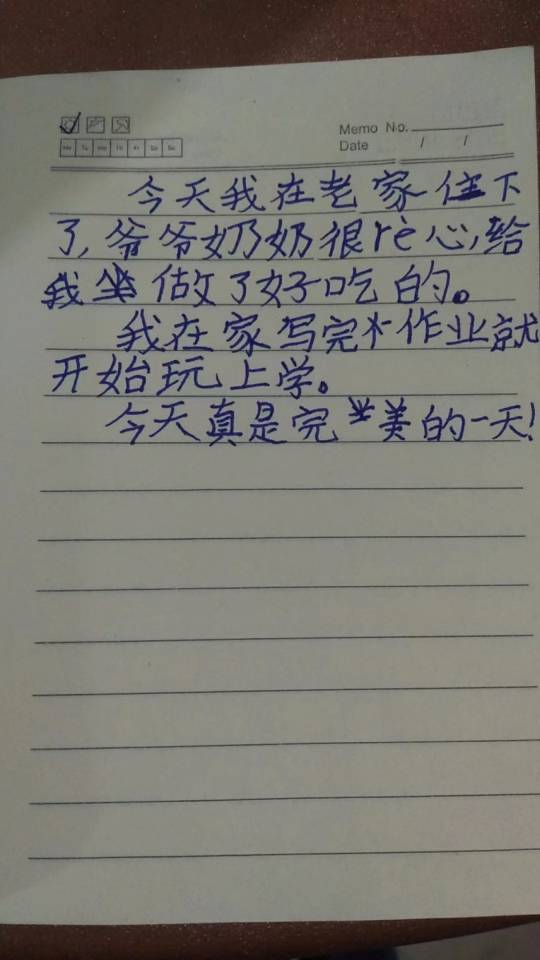 Memo No.
Date / /
Mo Tu We Th Fr Sa Su
今天我在老家住下
了,爷爷奶奶很rè心,给
我做了好吃的。
我在家写完作业就
开始玩上学。
今天真是完美的一天!